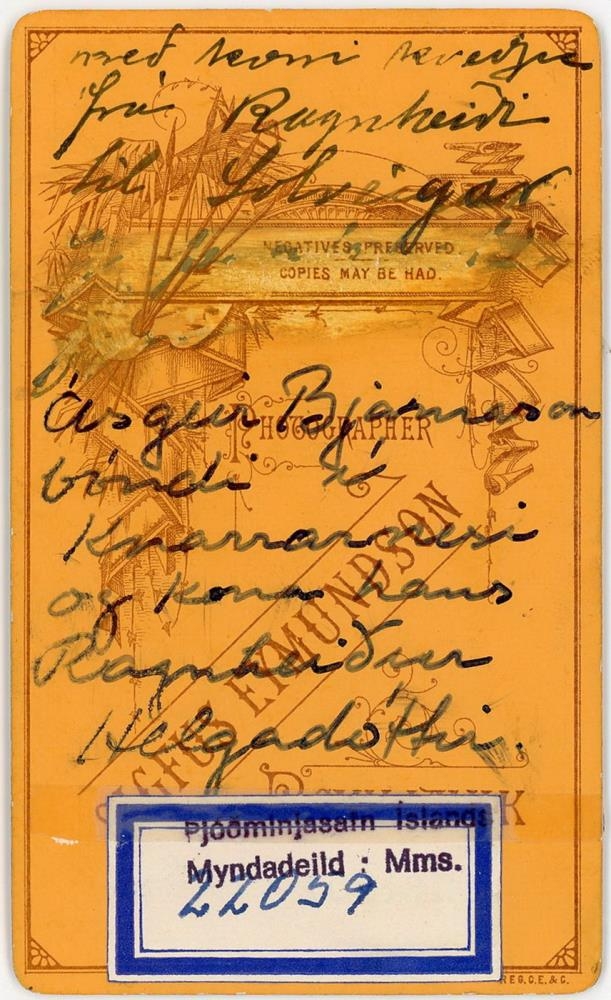 með kærri kveðju
frá Ragnheiði
til Solveigar
NEGATIVES PRESERVED
COPIES MAY BE HAD.
Ásgeir Bjarnason
PHOTOGRAPHER
bóndi í
Knarrarnesi
og kona hans
Ragnheiður
Helgadóttir.
SIGFÚS EYMUNDSON
REYKJAVIK
Þjóðminjasafn Íslands
Myndadeild : Mms.
22059
REG.C.E.& C.